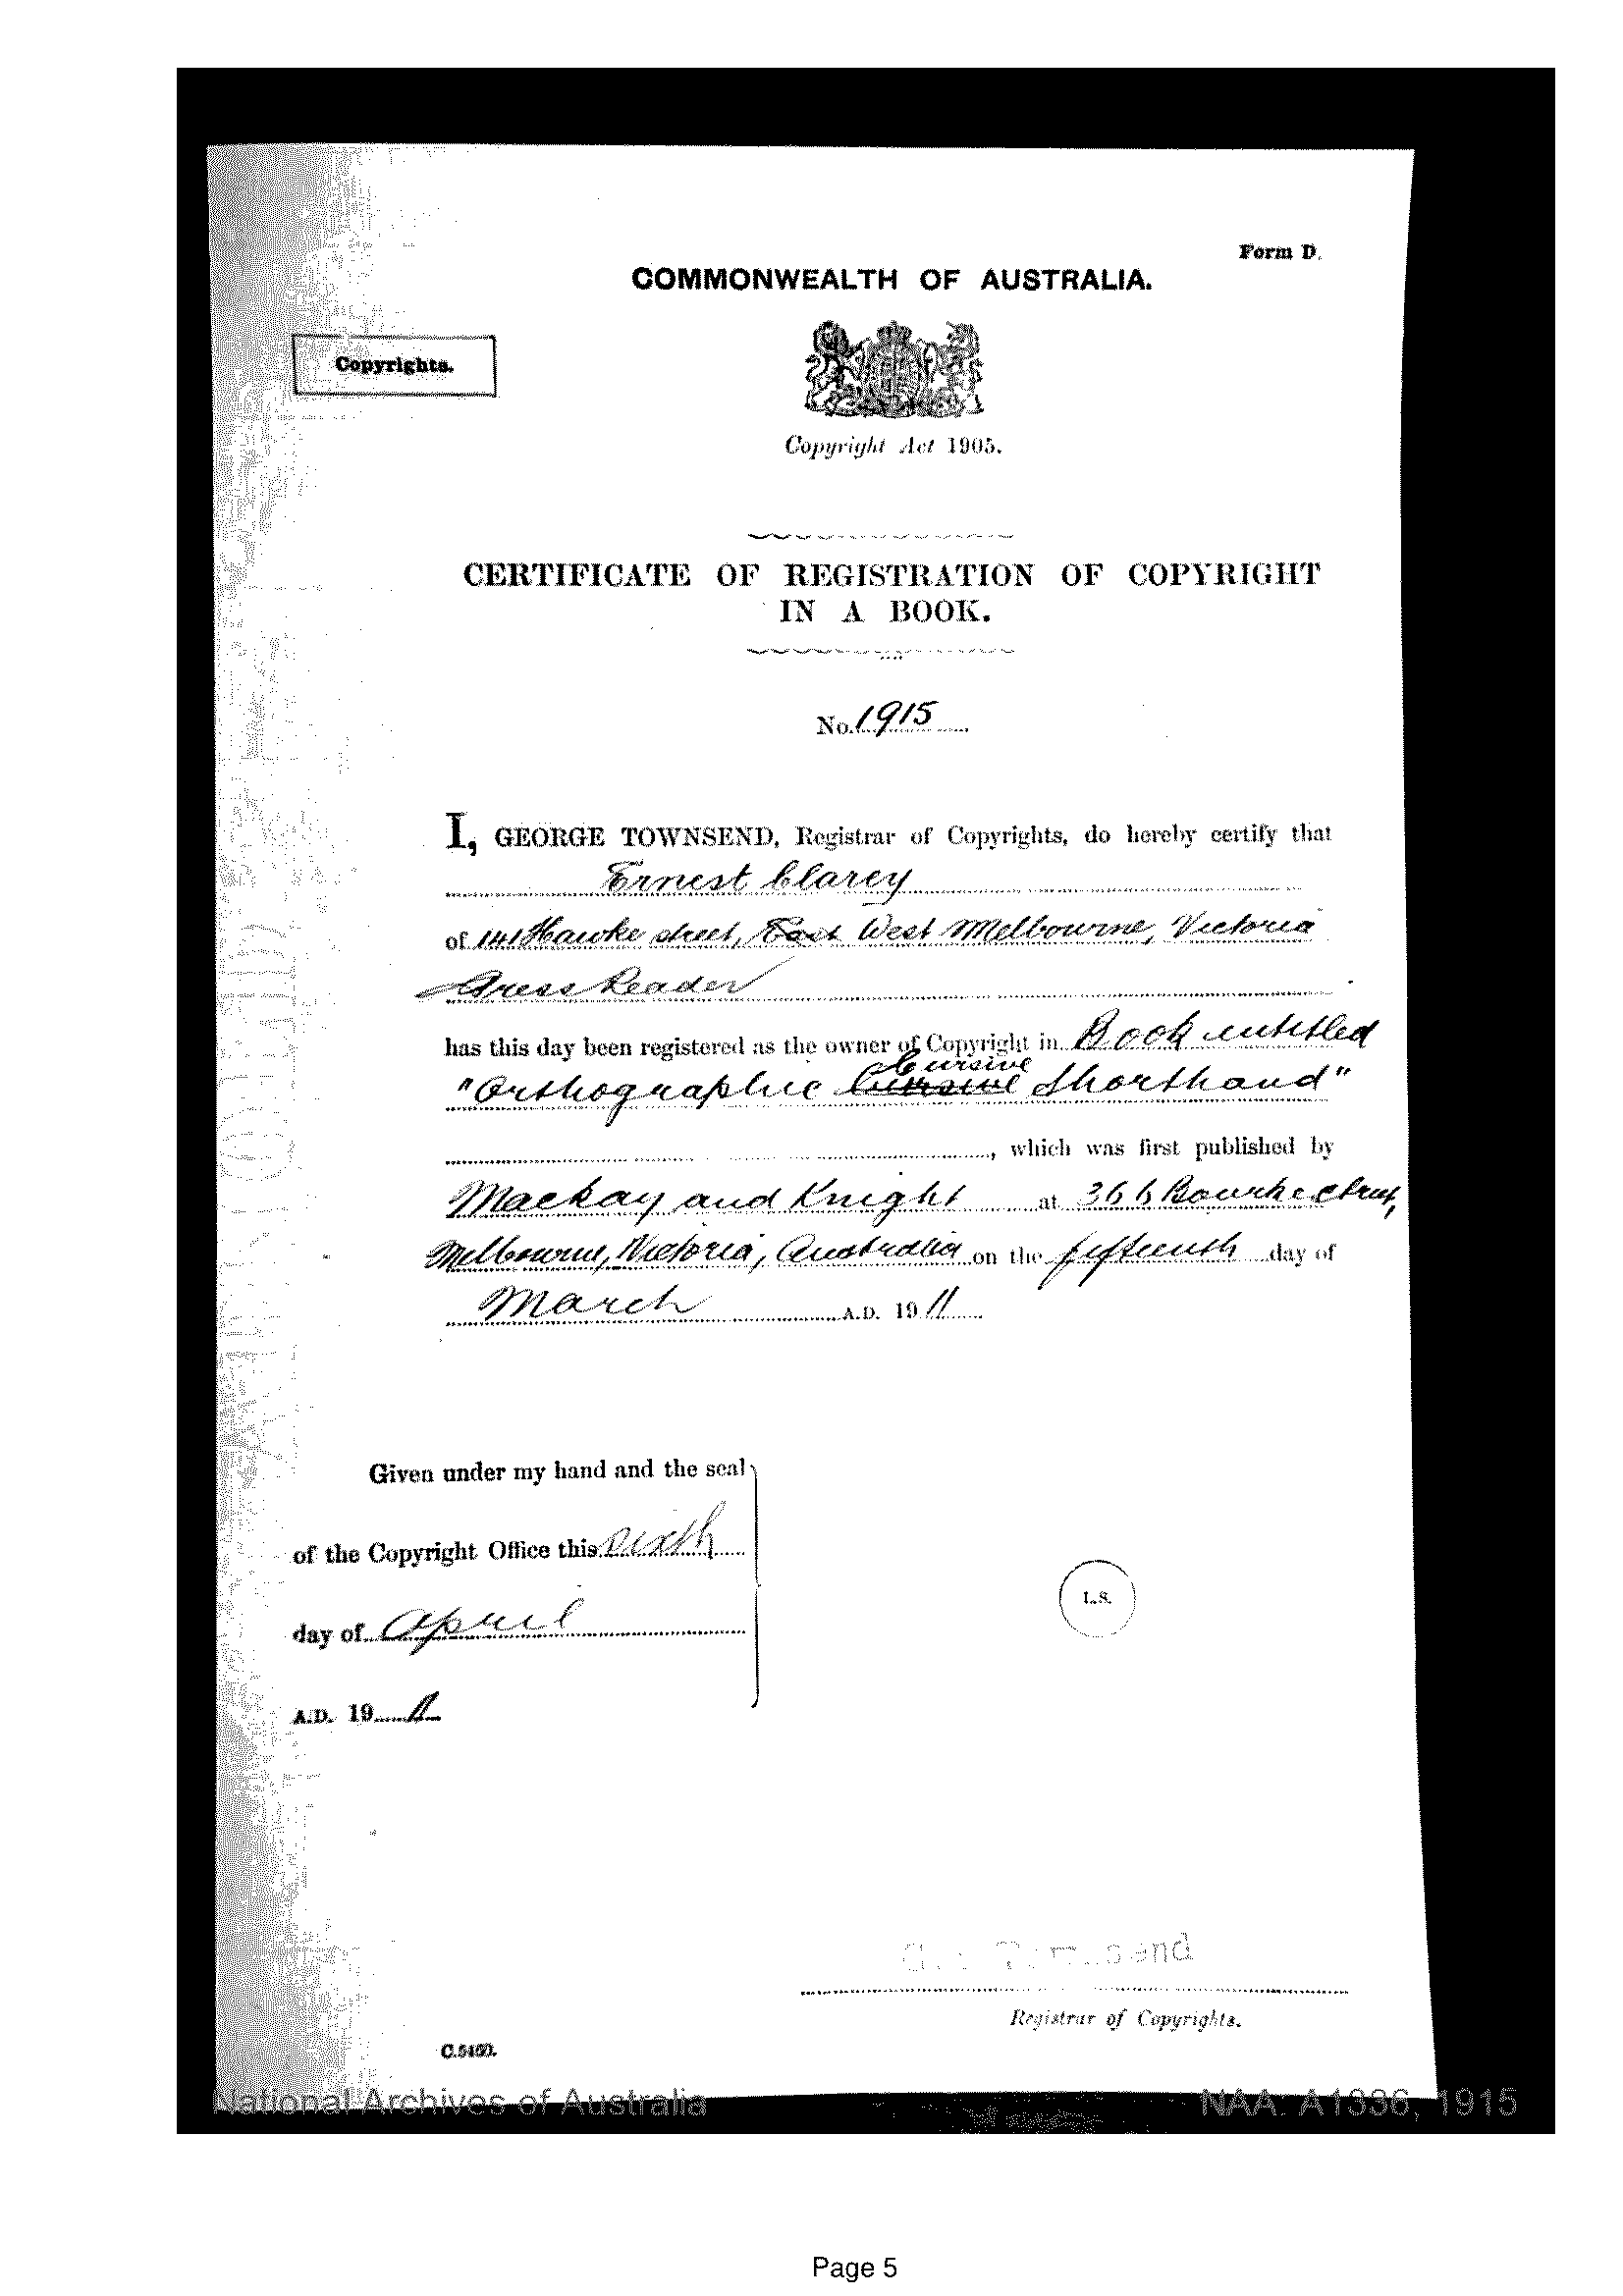 Form D.
COMMONWEALTH OF AUSTRALIA.
Copyrights.
Copyright Act 1905.
CERTIFICATE OF REGISTRATION OF COPYRIGHT
IN A BOOK.
No. 1915
I, GEORGE TOWNSEND, Registrar of Copyrights, do hereby certify that
Ernest Clarey
of 141 Hawke street, East West Melbourne, Victoria
Press Reader
has this day been registered as the owner of Copyright in Book entitled
Cursive
"Orthographic Cursive Shorthand"
, which was first published by
Mackay and Knight at 366 Bourke street,
Melbourne, Victoria, Australia on the fifteenth day of
March A.D. 19 11
Given under my hand and the seal
of the Copyright Office this sixth
day of April
L.S.
A.D. 19 11
Geo Townsend
Registrar of Copyrights.
C.5460.
National Archives of Australia NAA: A1336, 1915
Page 5